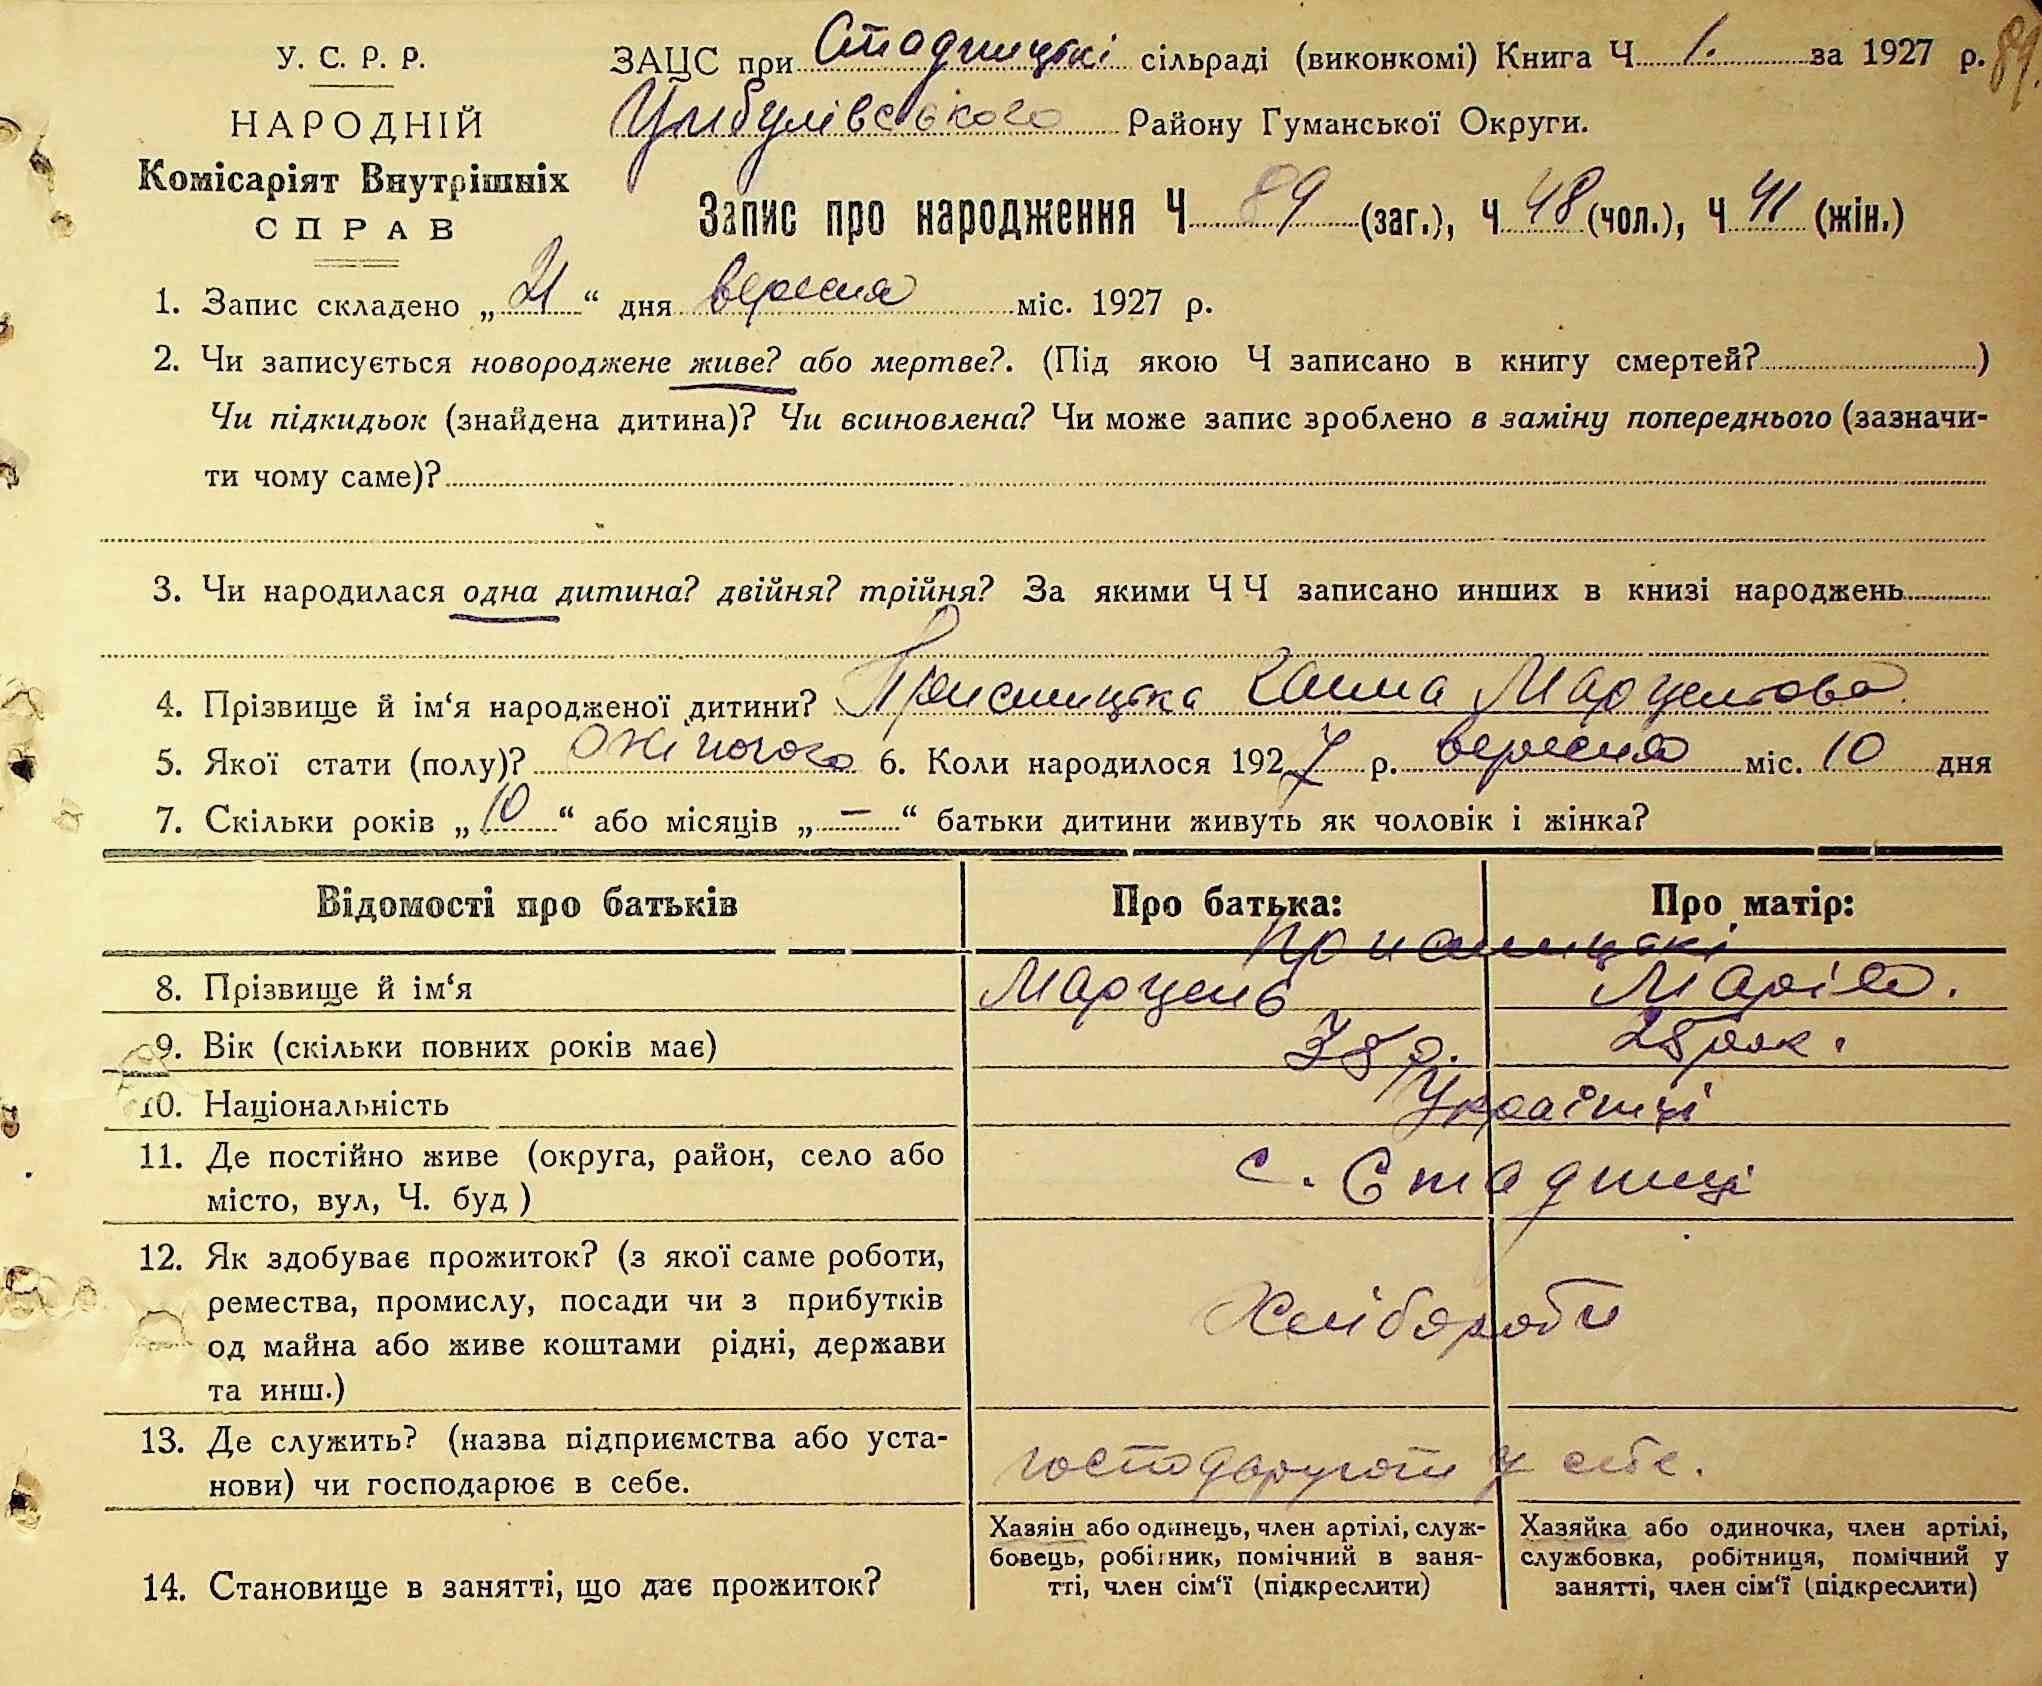 У. С. Р. Р.
НАРОДНІЙ
Комісаріят Внутрішніх
СПРАВ
ЗАЦС при Стадницькі сільраді (виконкомі) Книга Ч 1. за 1927 р.
89.
Цибулівського Району Гуманської Округи.
Запис про народження Ч 89 (заг.), Ч 48 (чол.), Ч 41 (жін.)
1. Запис складено „21“ дня вересня міс. 1927 р.
2. Чи записується новороджене живе? або мертве?. (Під якою Ч записано в книгу смертей? )
Чи підкидьок (знайдена дитина)? Чи всиновлена? Чи може запис зроблено в заміну попереднього (зазначи-
ти чому саме)?
3. Чи народилася одна дитина? двійня? трійня? За якими Ч Ч записано инших в книзі народжень
4. Прізвище й ім‘я народженої дитини? Присницька Ганна Марцельова
5. Якої стати (полу)? жіночого 6. Коли народилося 1927 р. вересня міс. 10 дня
7. Скільки років „10“ або місяців „—“ батьки дитини живуть як чоловік і жінка?
Відомості про батьків Про батька: Про матір:
Присницькі
8. Прізвище й ім‘я Марцель Марія.
9. Вік (скільки повних років має) 38 р. 28 рок.
10. Національність Українці
11. Де постійно живе (округа, район, село або
місто, вул, Ч. буд ) с. Стадниці
12. Як здобуває прожиток? (з якої саме роботи,
ремества, промислу, посади чи з прибутків
од майна або живе коштами рідні, держави
та инш.) Хлібороби
13. Де служить? (назва підприємства або уста-
нови) чи господарює в себе. господарують у себе.
14. Становище в занятті, що дає прожиток?
Хазяін або одинець, член артілі, служ-
бовець, робітник, помічний в заня-
тті, член сім‘ї (підкреслити)
Хазяйка або одиночка, член артілі,
службовка, робітниця, помічний у
занятті, член сім‘ї (підкреслити)